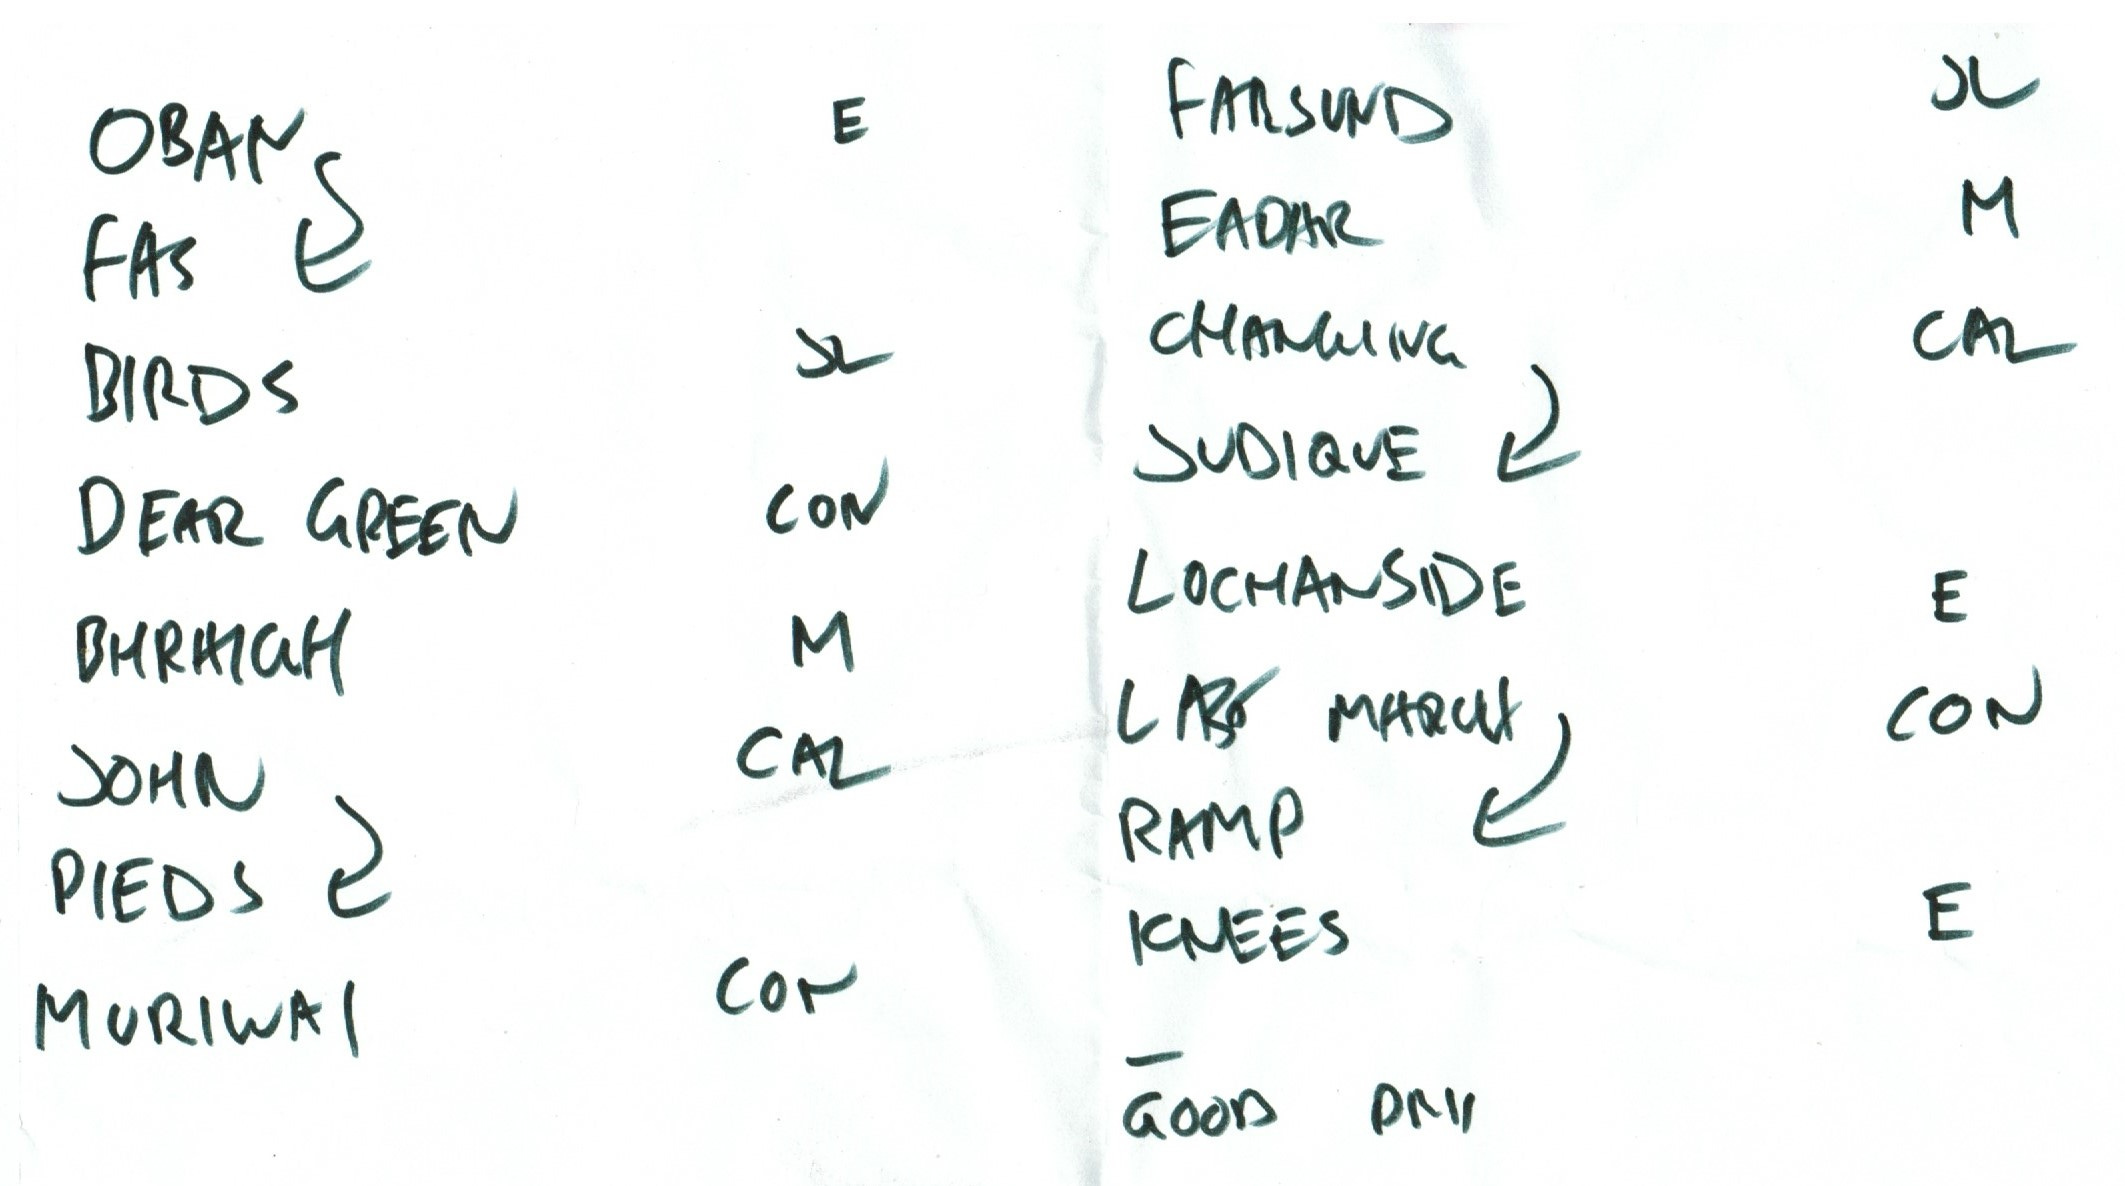 OBAN E
FAS
BIRDS JL
DEAR GREEN CON
BHRAIGH M
JOHN CAL
PIEDS
MURIWAI CON
FARSUND JL
EADAR M
CHANGING CAL
JUDIQUE
LOCHANSIDE E
MARCH CON
RAMP
KNEES E
—
GOOD